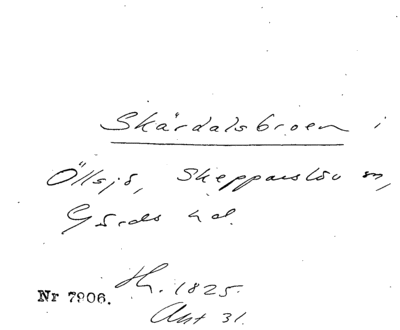 Skärdalsbroen i
Öllsjö, Skepparslöv sn,
Gärds hd.
Nr 7906. Th. 1825.
Akt 31.